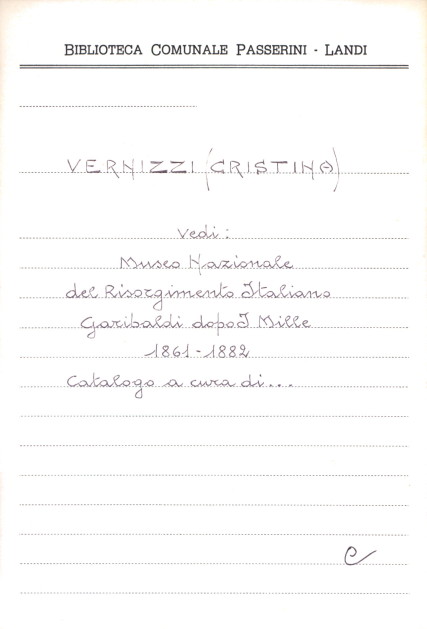 BIBLIOTECA COMUNALE PASSERINI - LANDI
VERNIZZI (CRISTINA)
Vedi:
Museo Nazionale
del Risorgimento Italiano
Garibaldi dopo I Mille
1861-1882
Catalogo a cura di...